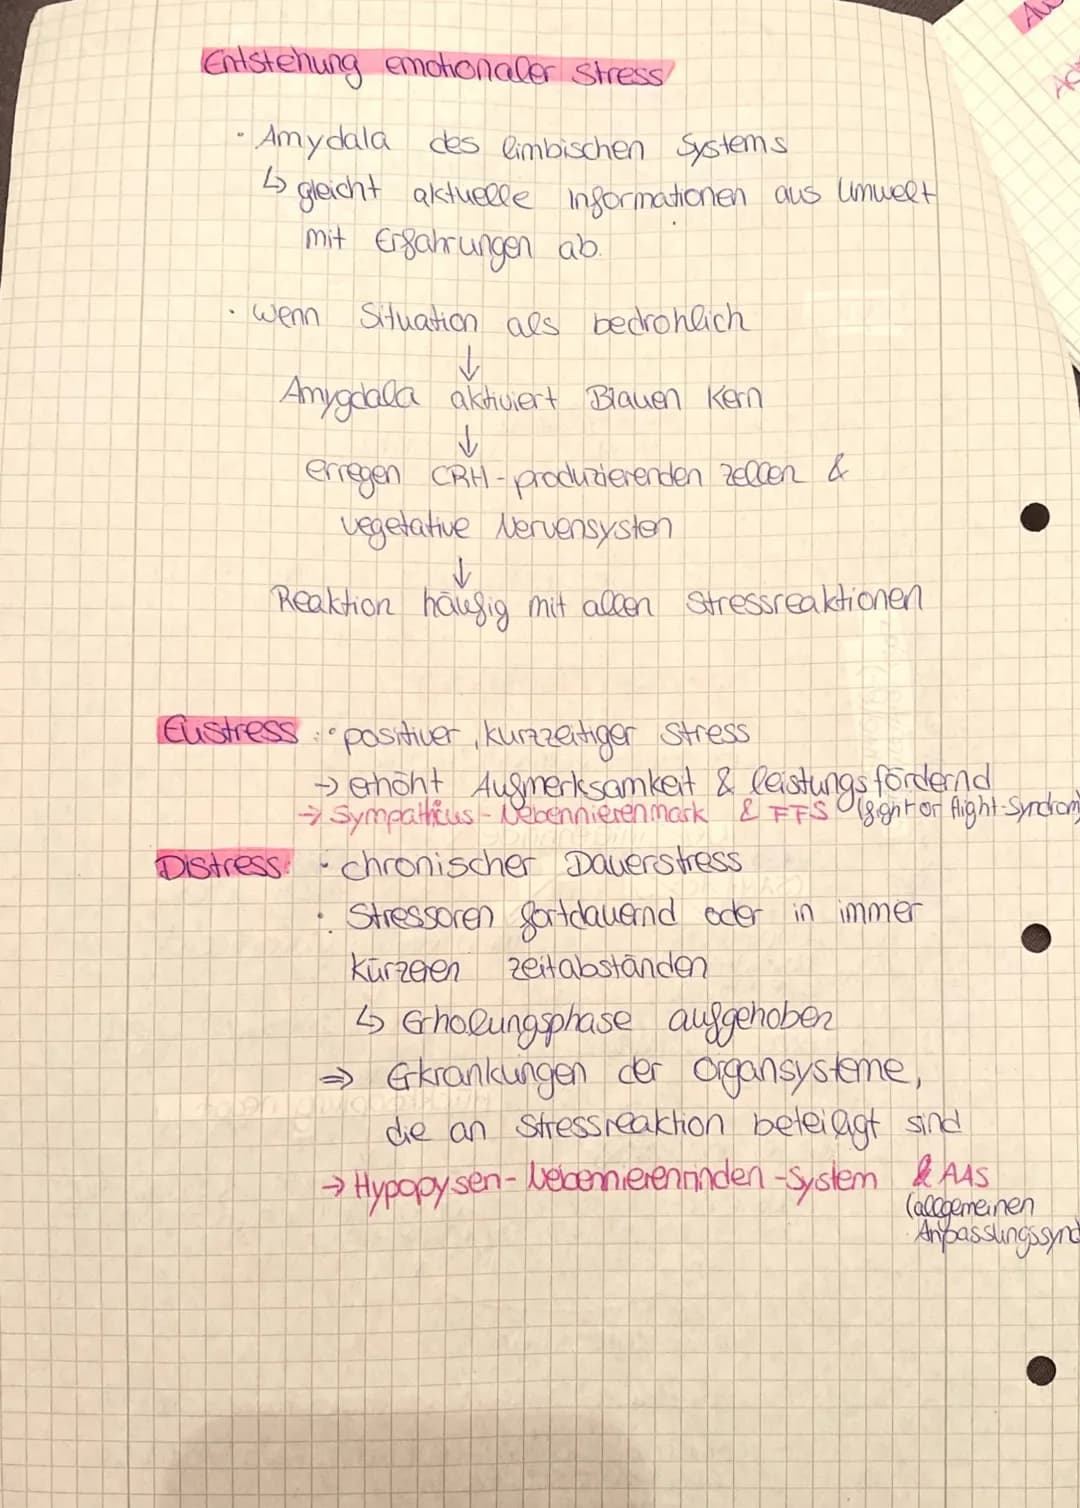 Entstehung emotionaler Stress
· Amydala des limbischen Systems
↳ gleicht aktuelle Informationen aus Umwelt
mit Erfahrungen ab.
· wenn Situation als bedrohlich
↓
Amygdala aktiviert Blauen Kern
↓
erregen CRH-produzierenden Zellen &
vegetative Nervensysten
↓
Reaktion häufig mit allen Stressreaktionen
Eustress: · positiver, kurzzeitiger Stress
→ erhöht Aufmerksamkeit & leistungsfördernd
→ Sympathicus - Nebennierenmark & FFS (fight or flight-Syndrom)
Distress: · chronischer Dauerstress
· Stressoren fortdauernd oder in immer
kürzeren Zeitabständen
↳ Erholungsphase aufgehoben
⇒ Erkrankungen der Organsysteme,
die an Stressreaktion beteiligt sind
→ Hypopysen-Nebennierenrinden-System & AAS
(allgemeinen
Anpassungssynd